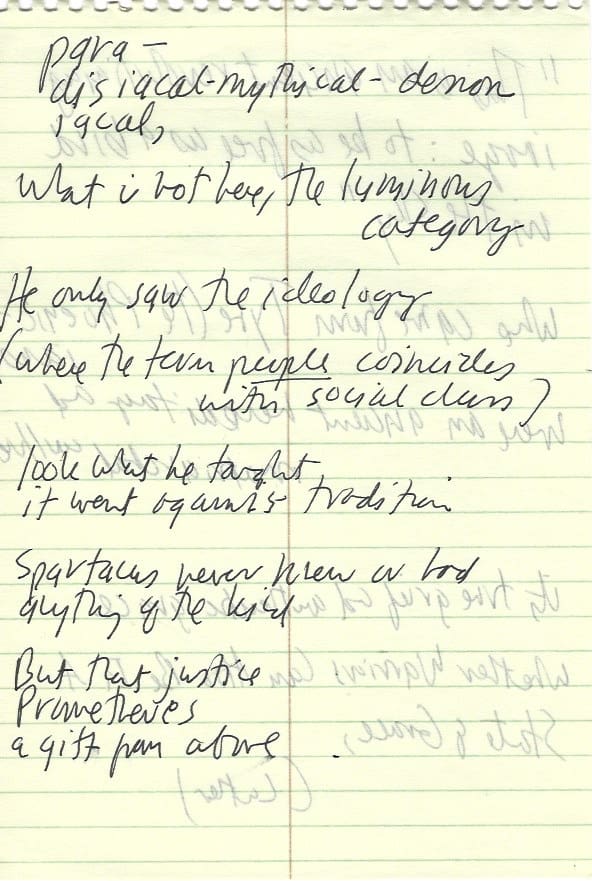 para –
disiacal-mythical-demon
iacal,
What is not here, the luminous
category
He only saw the ideology
(where the term people coincides
with social class)
look what he taught
it went against tradition
Spartacus never knew or had
anything of the kind
But that justice
Prometheus
a gift from above .